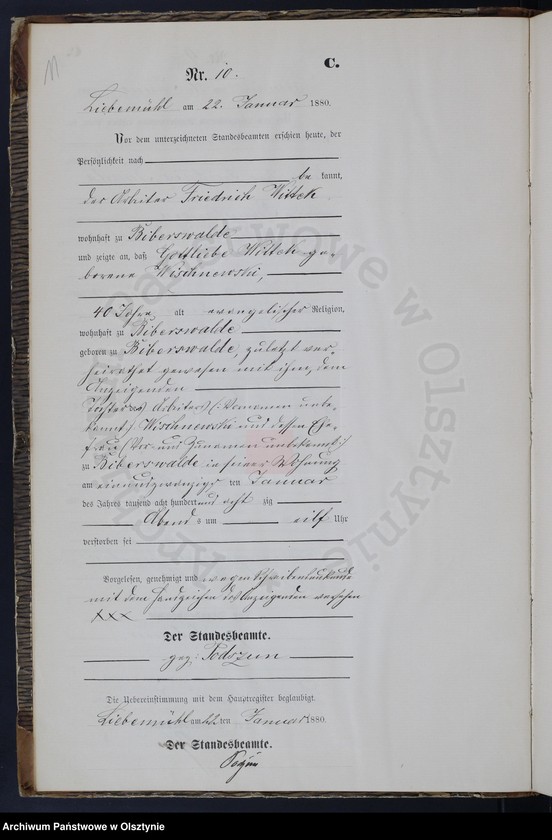 11
C.
Nr. 10.
Liebemühl am 22. Januar 1880.
Vor dem unterzeichneten Standesbeamten erschien heute, der
Persönlichkeit nach
be kannt,
der Arbeiter Friedrich Wittek
wohnhaft zu Biberswalde
und zeigte an, daß Gottliebe Wittek ge-
borene Wischnewski,
40 Jahre alt evangelischer Religion,
wohnhaft zu Biberswalde
geboren zu Biberswalde, zuletzt ver-
heirathet gewesen mit ihm, dem
Anzeigenden
Tochter des Arbeiters (:Vornamen unbe-
kannt:) Wischnewski und dessen Ehe-
frau (:Vor- und Zunamen unbekannt:)
zu Biberswalde in seiner Wohnung
am einundzwanzigsten Januar
des Jahres tausend acht hundert und acht zig
Abend s um eilf Uhr
verstorben sei
Vorgelesen, genehmigt und wegen Schreibensunkunde
mit dem Handzeichen des Anzeigenden versehen
XXX
Der Standesbeamte.
gez: Podszun
Die Uebereinstimmung mit dem Hauptregister beglaubigt.
Liebemühl am 22 ten Januar 1880.
Der Standesbeamte.
Archiwum Państwowe w Olsztynie
Archiwum Państwowe w Olsztynie